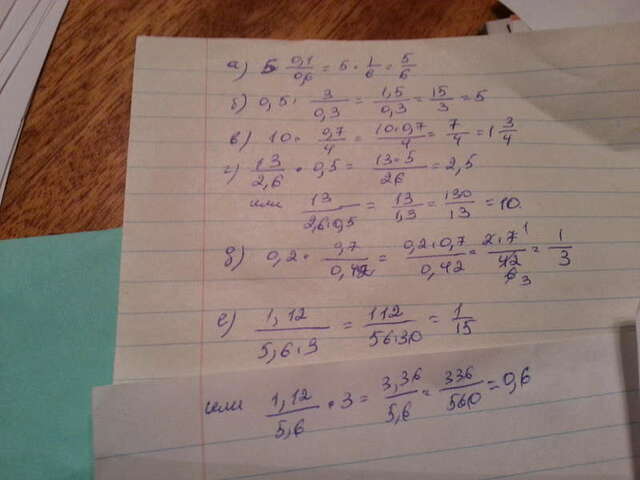 а) 5 0,1/0,6 = 5 · 1/6 = 5/6
б) 0,5 · 3/0,3 = 1,5/0,3 = 15/3 = 5
в) 10 · 0,7/4 = 10·0,7/4 = 7/4 = 1 3/4
г) 13/2,6 · 0,5 = 13·5/26 = 2,5
или 13/2,6·0,5 = 13/1,3 = 130/13 = 10
д) 0,2 · 0,7/0,42 = 0,2·0,7/0,42 = 2·7 1/42 6 3 = 1/3
е) 1,12/5,6·3 = 112/56·30 = 1/15
или 1,12/5,6 · 3 = 3,36/5,6 = 336/560 = 0,6